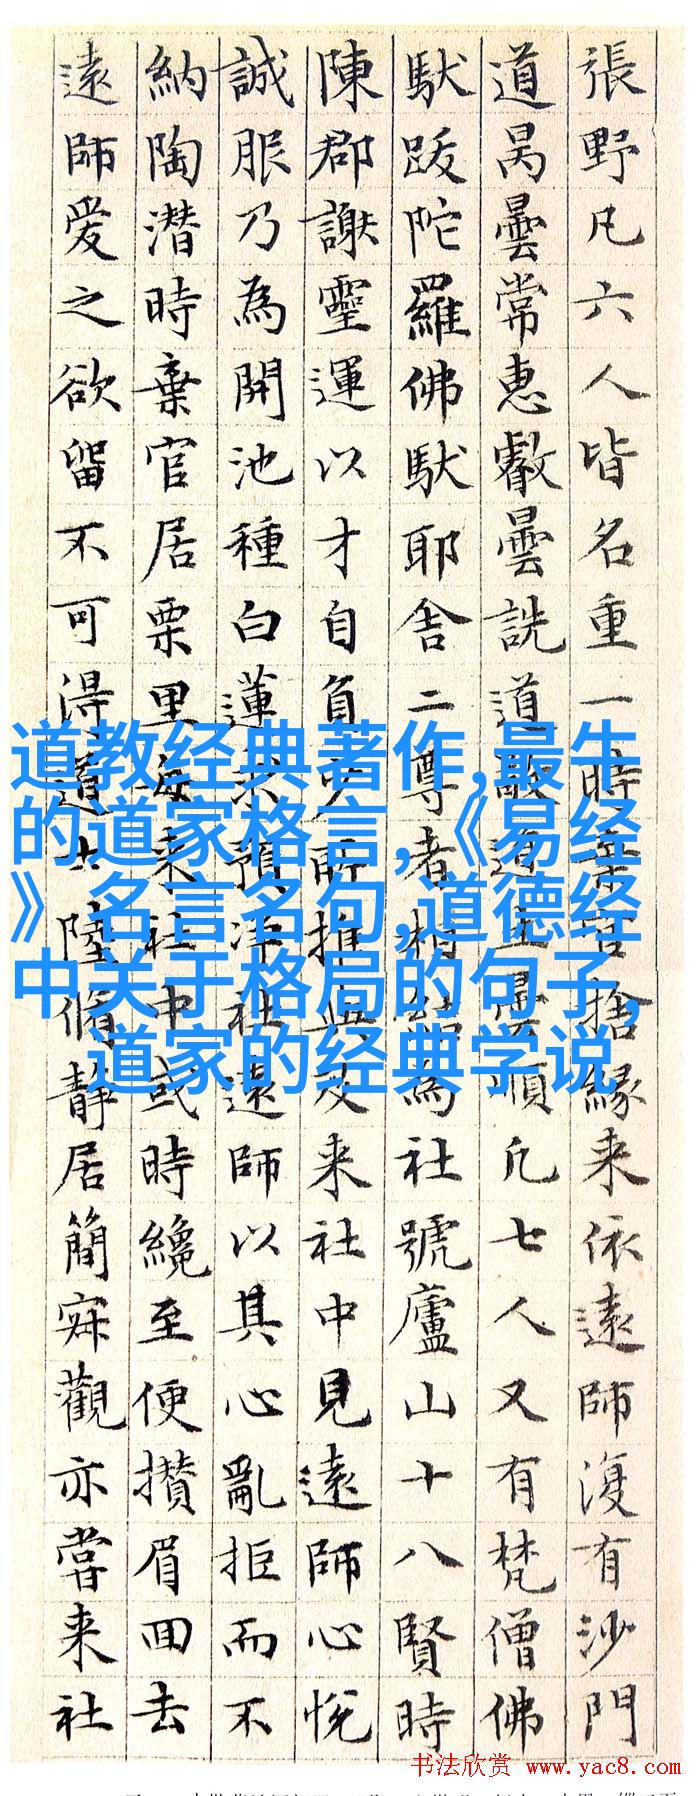 張野凡六人皆名重一時捨緣来依遠師復有沙門
道昺曇常惠叡曇詵道敬道生曇順凡七人又有梵僧佛
馱跋陀羅佛馱耶舍二尊者相結為社號廬山十八賢時
陳郡謝靈運以才自負少所推與及来社中見遠師心悅
誠服乃為開池種白蓮求預淨社遠師以其心亂拒而不
納陶潛時棄官居栗里每来社中或時纔至便攢眉回去
遠師愛之欲留不可得道士陸脩静居簡寂觀亦嘗来社
道教经典著作,最牛
的道家格言,《易经
》名言名句,道德经
中关于格局的句子,
道家的经典学说
书法欣赏 www.yac8.com